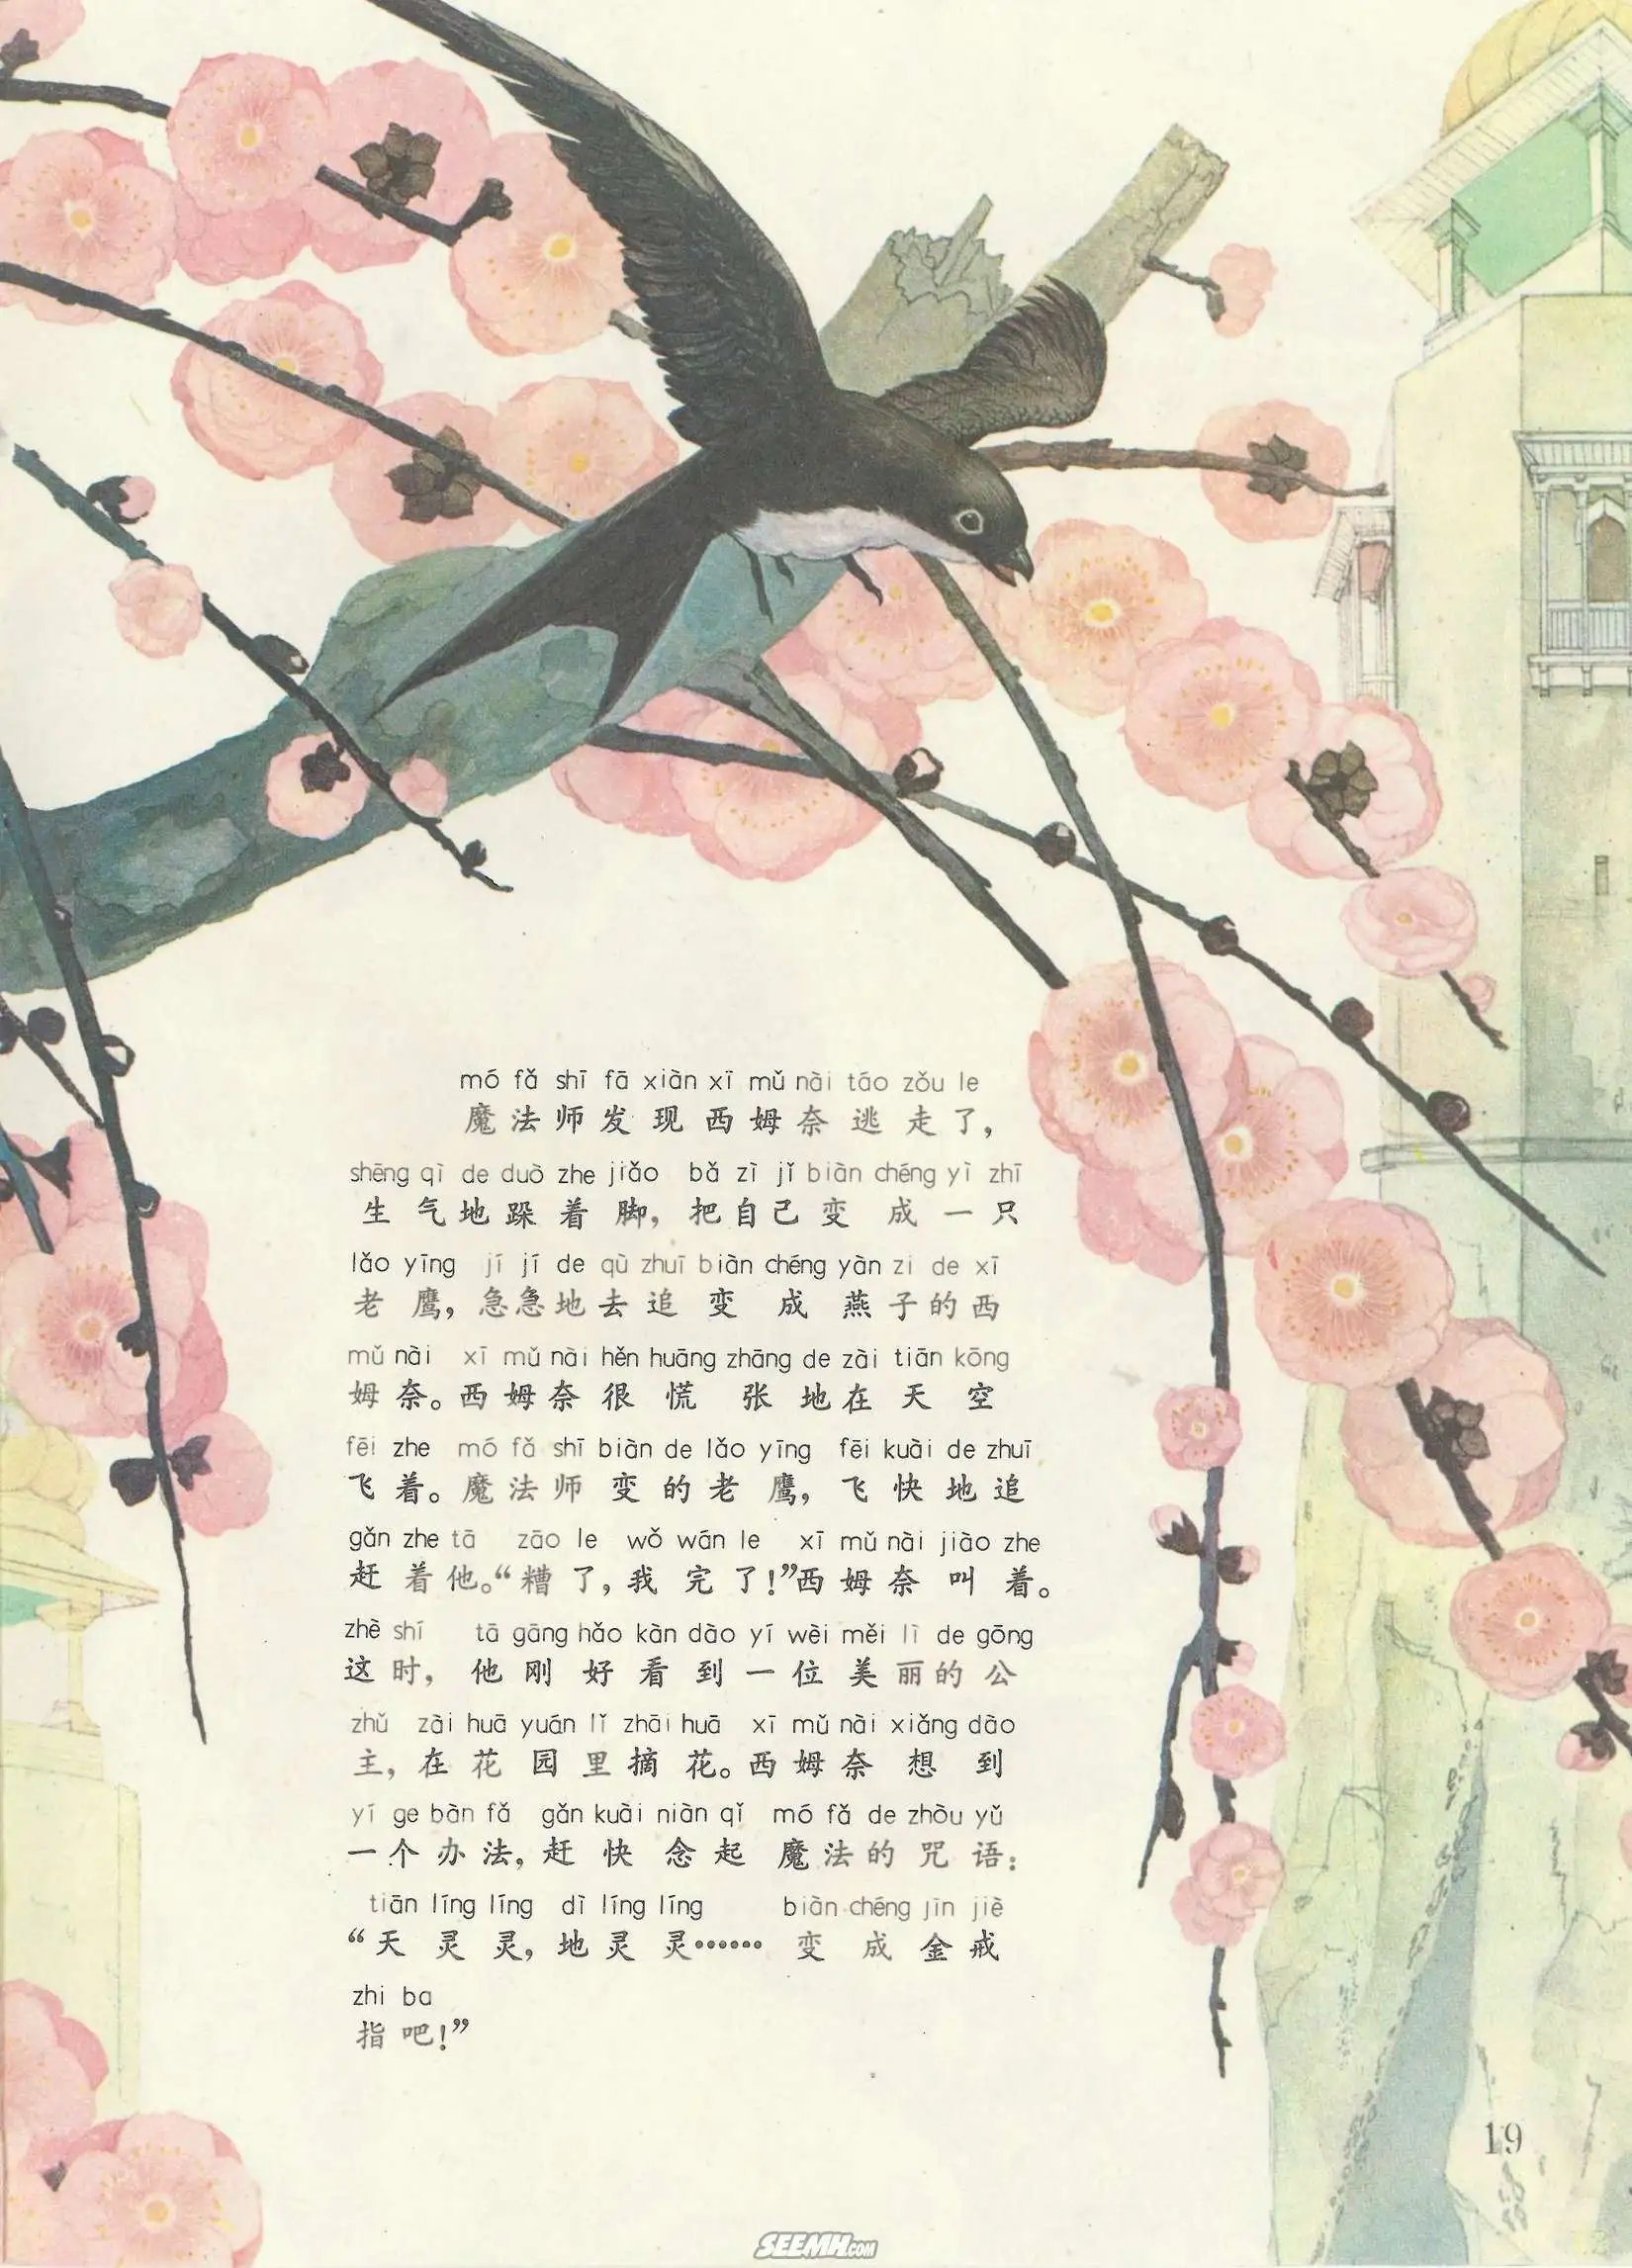 mó fǎ shī fā xiàn xī mǔ nài táo zǒu le
魔法师发现西姆奈逃走了，
shēng qì de duò zhe jiǎo bǎ zì jǐ biàn chéng yì zhī
生气地跺着脚，把自己变成一只
lǎo yīng jí jí de qù zhuī biàn chéng yàn zi de xī
老鹰，急急地去追变成燕子的西
mǔ nài xī mǔ nài hěn huāng zhāng de zài tiān kōng
姆奈。西姆奈很慌张地在天空
fēi zhe mó fǎ shī biàn de lǎo yīng fēi kuài de zhuī
飞着。魔法师变的老鹰，飞快地追
gǎn zhe tā zāo le wǒ wán le xī mǔ nài jiào zhe
赶着他。“糟了，我完了！”西姆奈叫着。
zhè shí tā gāng hǎo kàn dào yí wèi měi lì de gōng
这时，他刚好看到一位美丽的公
zhǔ zài huā yuán lǐ zhāi huā xī mǔ nài xiǎng dào
主，在花园里摘花。西姆奈想到
yí ge bàn fǎ gǎn kuài niàn qǐ mó fǎ de zhòu yǔ
一个办法，赶快念起魔法的咒语：
tiān líng líng dì líng líng biàn chéng jīn jiè
“天灵灵，地灵灵……变成金戒
zhi ba
指吧！”
19
SEEMH.COM